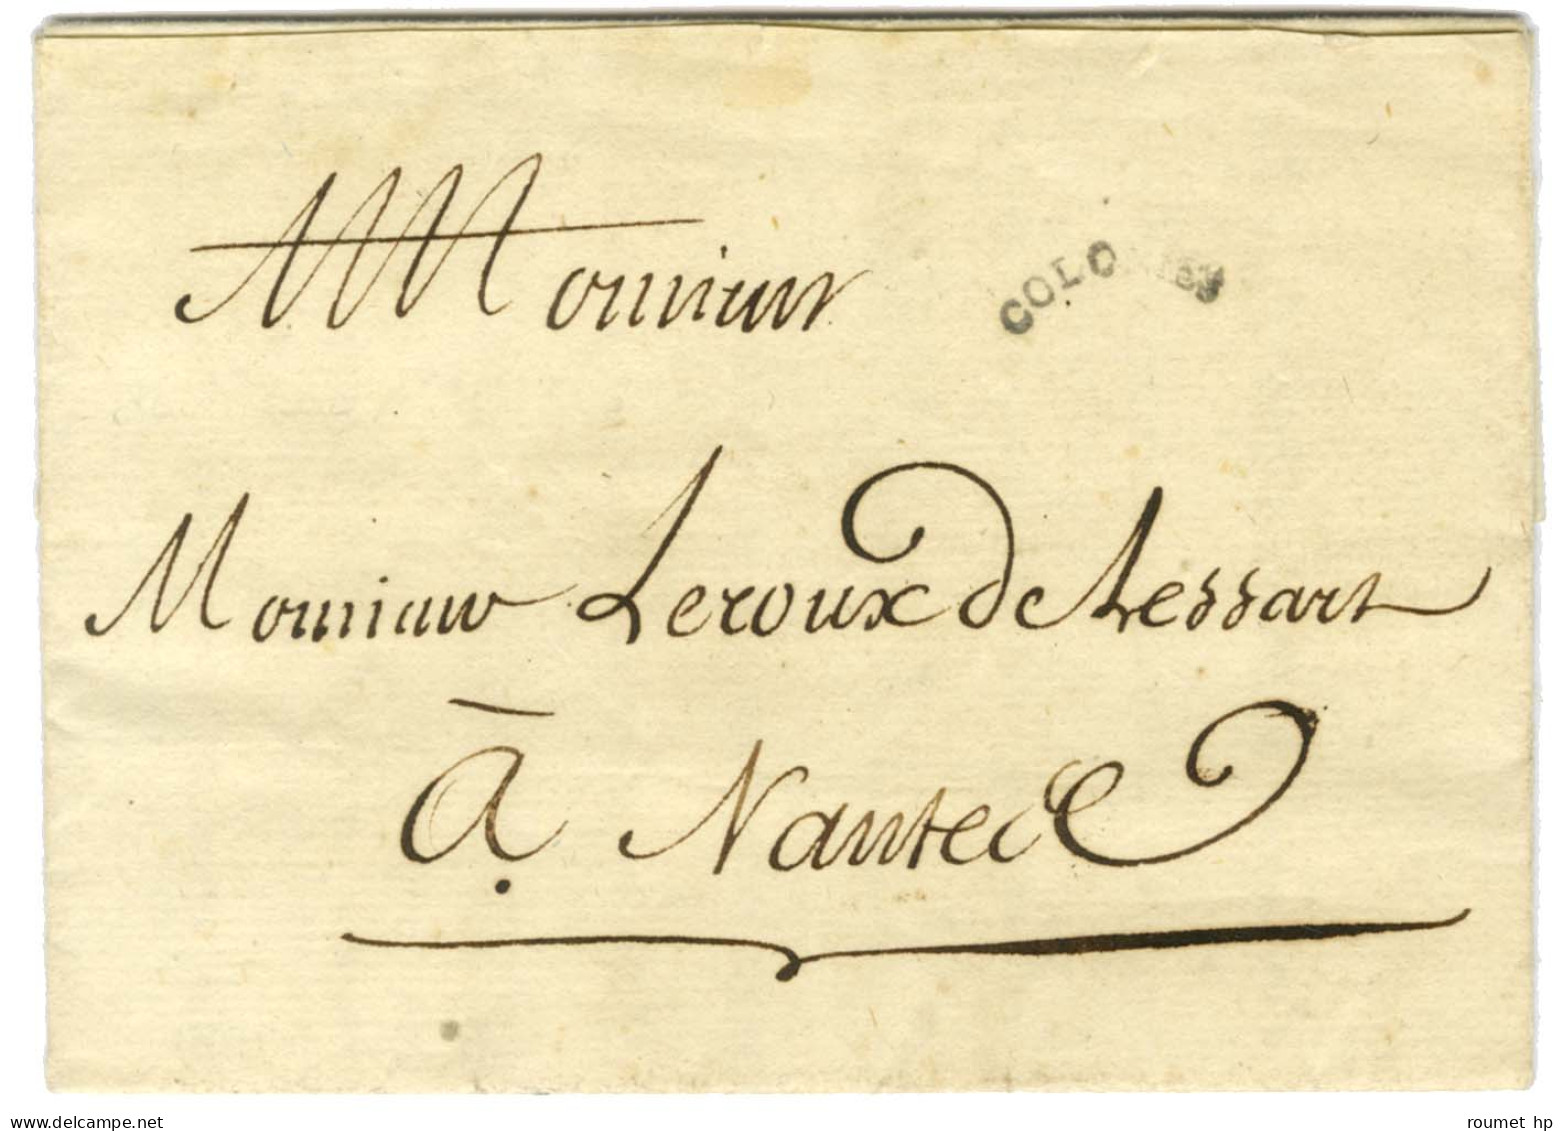 Monsieur
COLONIES
Monsieur Leroux de Lessart
à Nantes
delcampe.net
roumet hp